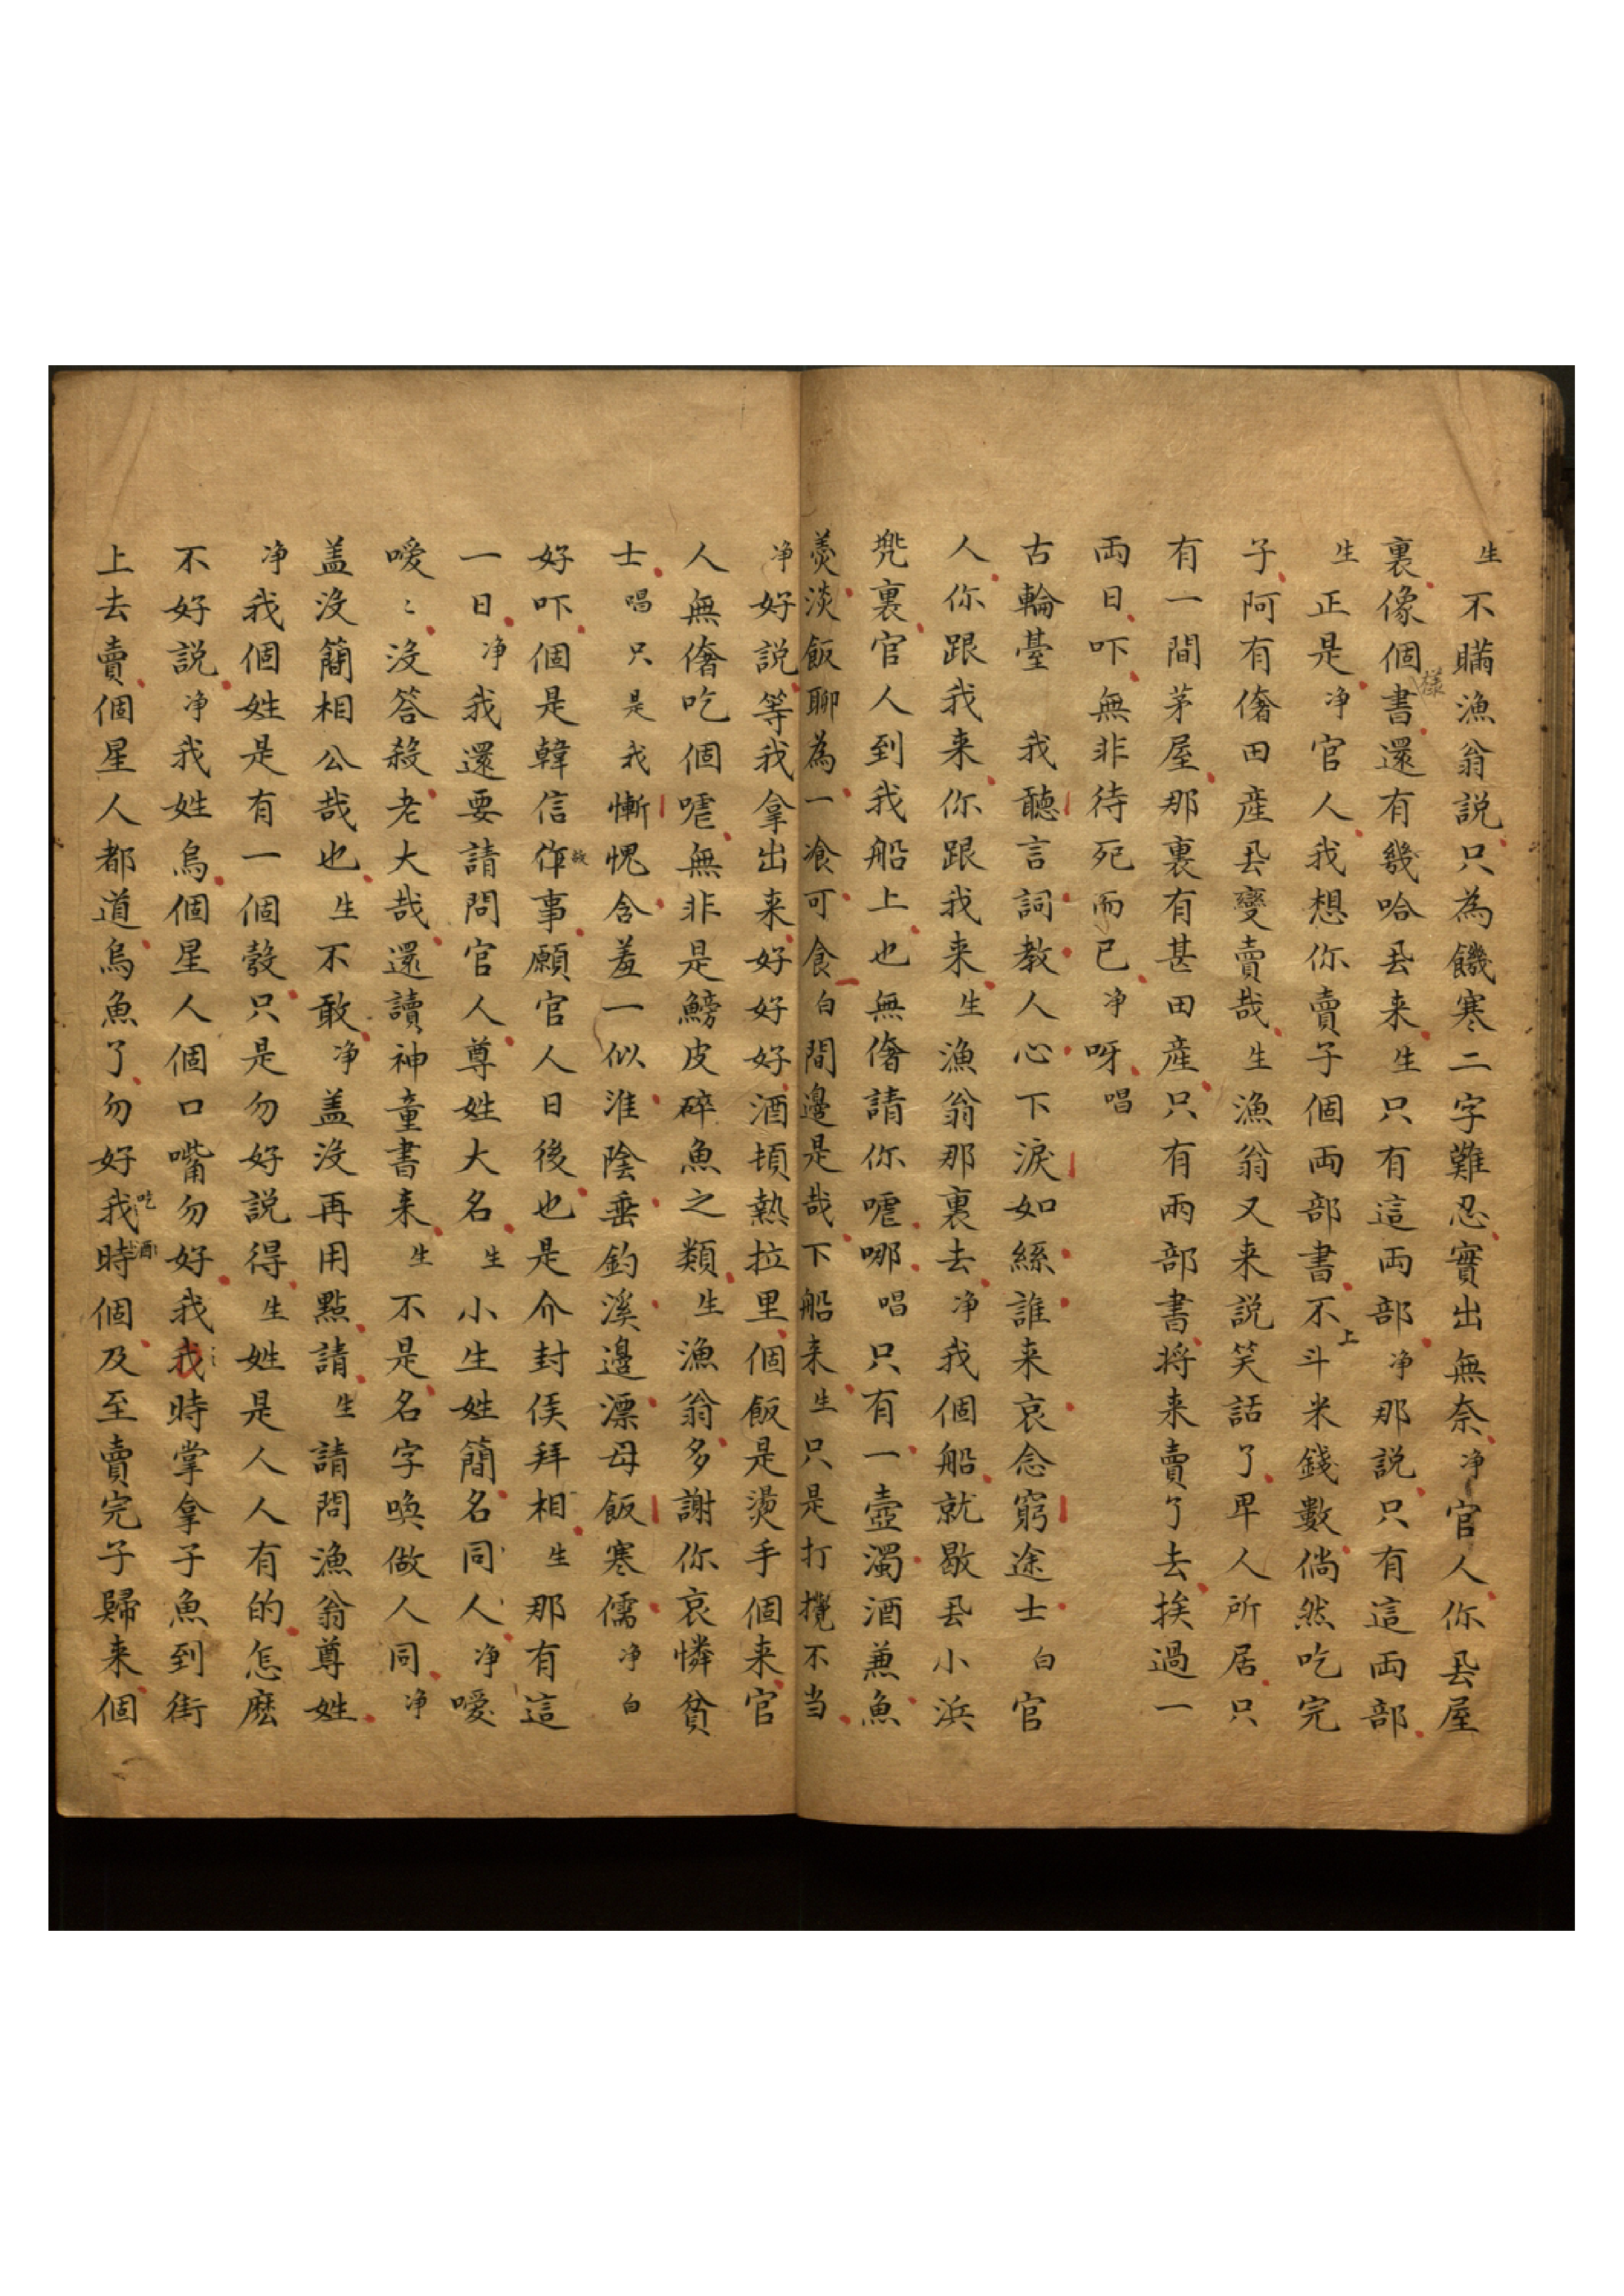 生不瞞漁翁説只為饑寒二字難忍實出無奈净官人你厾屋
裏像個樣書還有幾哈厾来生只有這両部净那説只有這両部
生正是净官人我想你賣子個両部書不上斗米錢數倘然吃完
子阿有奢田産厾變賣哉生漁翁又来説笑話了卑人所居只
有一間茅屋那裏有甚田産只有両部書将来賣了去挨過一
両日吓無非待死而已净呀唱
古輪臺 我聽言詞教人心下淚如絲誰来哀念窮途士白官
人你跟我来你跟我来生漁翁那裏去净我個船就歇厾小浜
兠裏官人到我船上也無奢請你嘘哪唱只有一壺濁酒兼魚
羮淡飯聊為一飡可食白間邊是哉下船来生只是打攪不当
净好説等我拿出来好好好酒頓熱拉里個飯是燙手個来官
人無奢吃個嘘無非是鰟皮碎魚之類生漁翁多謝你哀憐貧
士唱只是我慚愧含羞一似淮陰垂釣溪邊漂母飯寒儒净白
好吓個是韓信作故事願官人日後也是介封侯拜相生那有這
一日净我還要請問官人尊姓大名生小生姓簡名同人净噯
噯〻没答殺老大哉還讀神童書来生不是名字喚做人同净
盖没簡相公哉也生不敢净盖没再用點請生請問漁翁尊姓
净我個姓是有一個發只是勿好説得生姓是人人有的怎麽
不好説净我姓烏個星人個口嘴勿好我我〻時掌拿子魚到街
上去賣個星人都道烏魚了勿好我吃酒時個及至賣完子歸来個